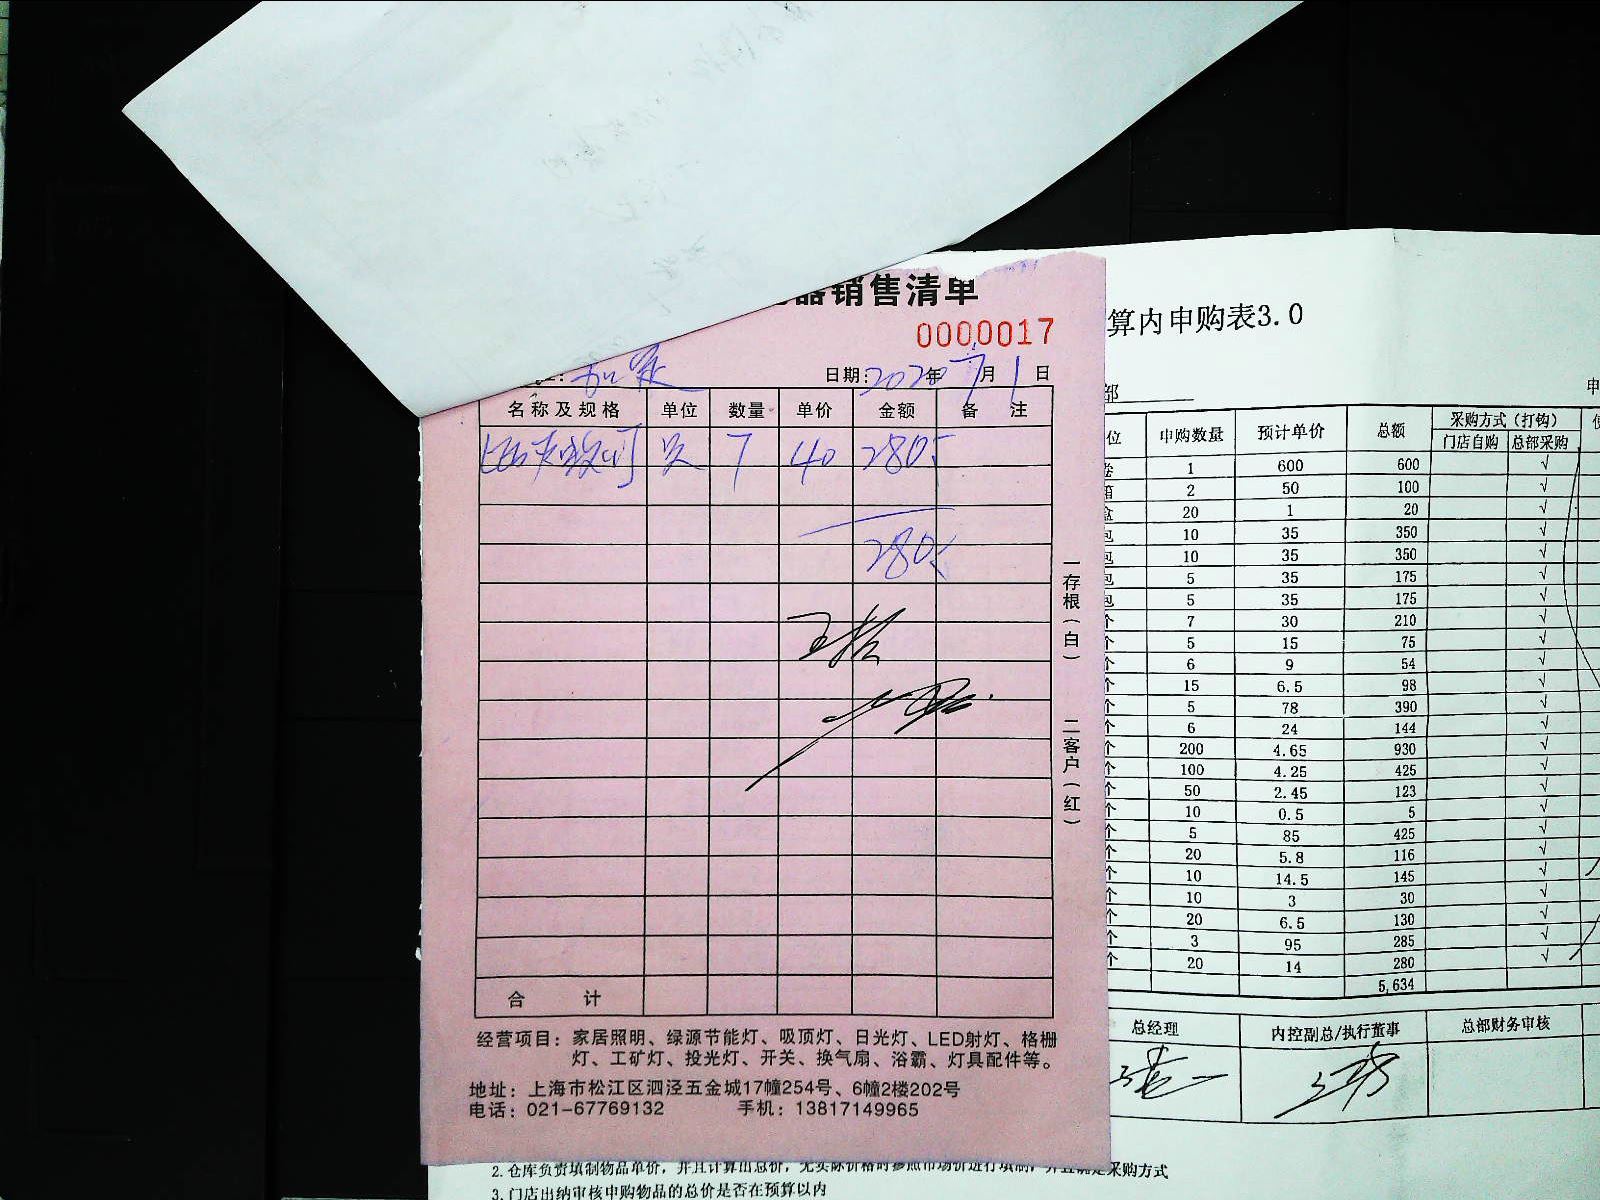 销售清单
0000017
日期: 2020年 7月 1日
名称及规格 单位 数量 单价 金额 备 注
7 40 280
280
合 计
一存根(白) 二客户(红)
经营项目：家居照明、绿源节能灯、吸顶灯、日光灯、LED射灯、格栅
灯、工矿灯、投光灯、开关、换气扇、浴霸、灯具配件等。
地址：上海市松江区泗泾五金城17幢254号、6幢2楼202号
电话：021-67769132 手机：13817149965
算内申购表3.0
部 申
位 申购数量 预计单价 总额 采购方式（打钩）
门店自购 总部采购
1 600 600 √
2 50 100 √
20 1 20 √
10 35 350 √
10 35 350 √
5 35 175 √
5 35 175 √
个 7 30 210 √
个 5 15 75 √
个 6 9 54 √
个 15 6.5 98 √
个 5 78 390 √
个 6 24 144 √
个 200 4.65 930 √
个 100 4.25 425 √
个 50 2.45 123 √
个 10 0.5 5 √
个 5 85 425 √
个 20 5.8 116 √
个 10 14.5 145 √
个 10 3 30 √
个 20 6.5 130 √
个 3 95 285 √
个 20 14 280 √
5,634
总经理 内控副总/执行董事 总部财务审核
2.仓库负责填制物品单价，并且计算出总价，无实际价格时参照市场价进行填制，并且确定采购方式
3.门店出纳审核申购物品的总价是否在预算以内